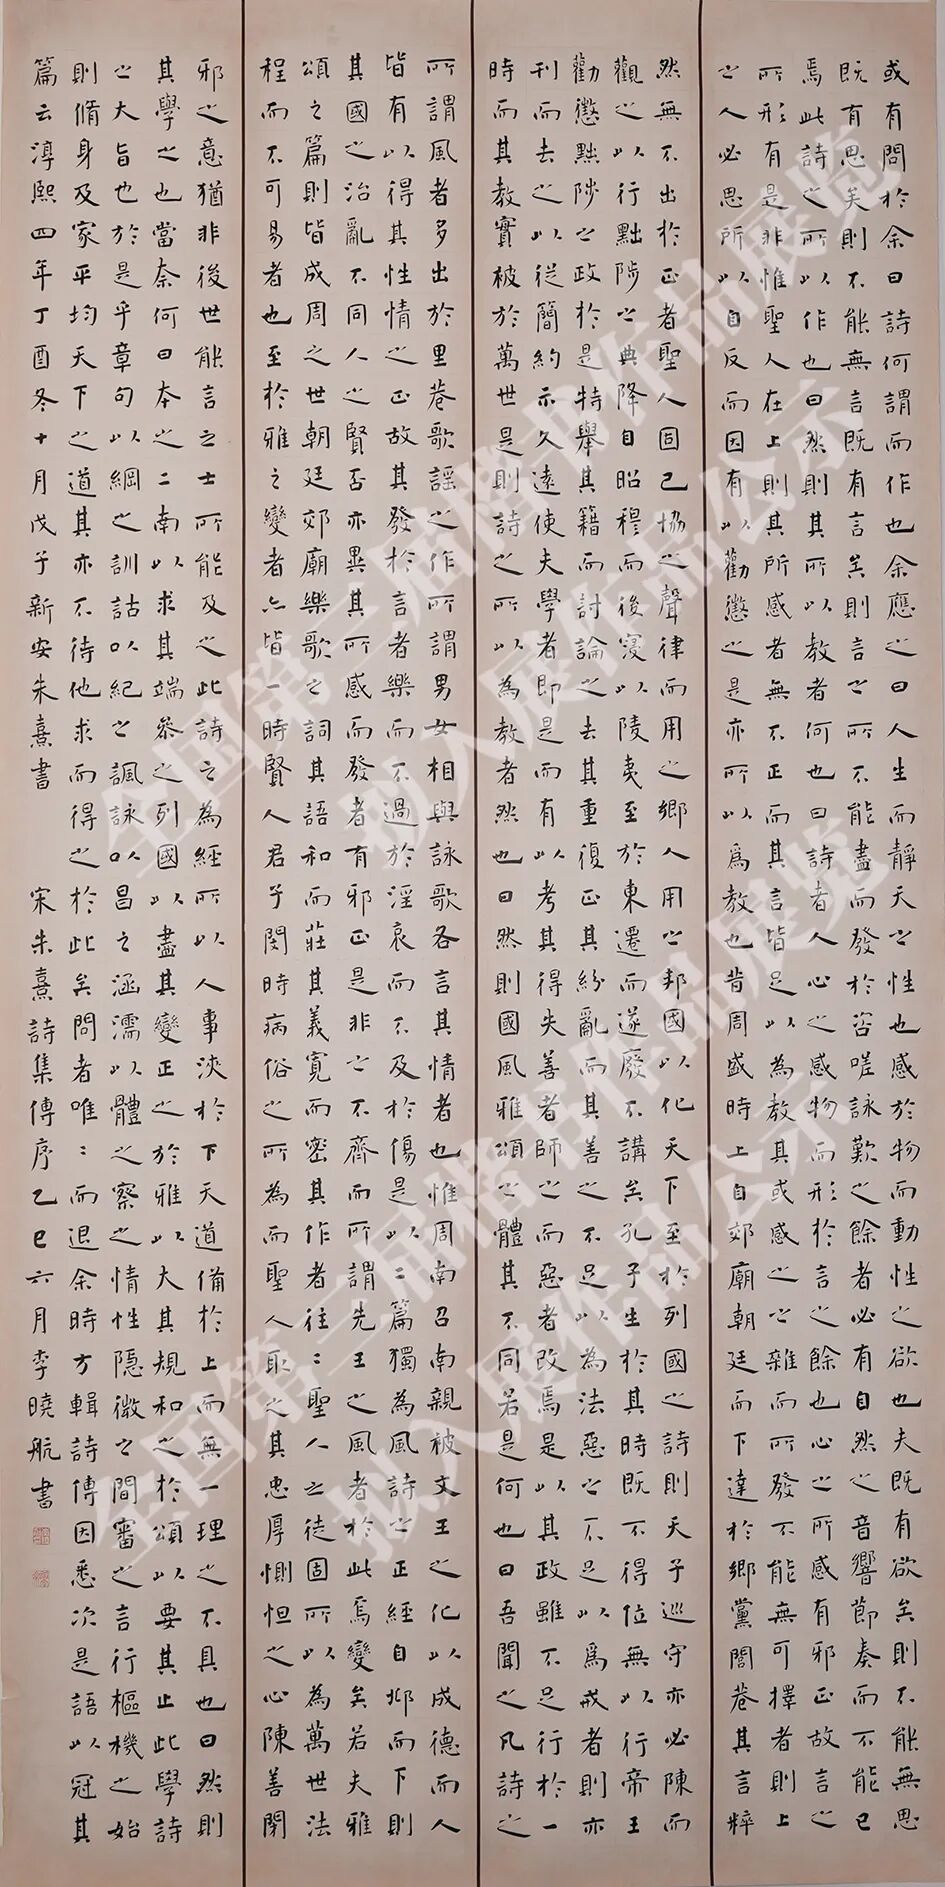 或有問於余曰詩何謂而作也余應之曰人生而靜天之性也感於物而動性之欲也夫既有欲矣則不能無思
既有思矣則不能無言既有言矣則言之所不能盡而發於咨嗟詠歎之餘者必有自然之音響節奏而不能已
焉此詩之所以作也曰然則其所以教者何也曰詩者人心之感物而形於言之餘也心之所感有邪正故言之
所形有是非惟聖人在上則其所感者無不正而其言皆足以為教其或感之之雜而所發不能無可擇者則上
之人必思所以自反而因有以勸懲之是亦所以為教也昔周盛時上自郊廟朝廷而下達於鄉黨閭巷其言粹
然無不出於正者聖人固已協之聲律而用之鄉人用之邦國以化天下至於列國之詩則天子巡守亦必陳而
觀之以行黜陟之典降自昭穆而後寖以陵夷至於東遷而遂廢不講矣孔子生於其時既不得位無以行帝王
勸懲黜陟之政於是特舉其籍而討論之去其重復正其紛亂而其善之不足以為法惡之不足以為戒者則亦
刊而去之以從簡約示久遠使夫學者即是而有以考其得失善者師之而惡者改焉是以其政雖不足行於一
時而其教實被於萬世是則詩之所以為教者然也曰然則國風雅頌之體其不同若是何也曰吾聞之凡詩之
所謂風者多出於里巷歌謠之作所謂男女相與詠歌各言其情者也惟周南召南親被文王之化以成德而人
皆有以得其性情之正故其發於言者樂而不過於淫哀而不及於傷是以二篇獨為風詩之正經自邶而下則
其國之治亂不同人之賢否亦異其所感而發者有邪正是非之不齊而所謂先王之風者於此焉變矣若夫雅
頌之篇則皆成周之世朝廷郊廟樂歌之詞其語和而莊其義寬而密其作者往〻聖人之徒固所以為萬世法
程而不可易者也至於雅之變者亦皆一時賢人君子閔時病俗之所為而聖人取之其忠厚惻怛之心陳善閉
邪之意猶非後世能言之士所能及之此詩之為經所以人事浹於下天道備於上而無一理之不具也曰然則
其學之也當奈何曰本之二南以求其端參之列國以盡其變正之於雅以大其規和之於頌以要其止此學詩
之大旨也於是乎章句以綱之訓詁以紀之諷詠以昌之涵濡以體之察之情性隱微之間審之言行樞機之始
則脩身及家平均天下之道其亦不待他求而得之於此矣問者唯〻而退余時方輯詩傳因悉次是語以冠其
篇云淳熙四年丁酉冬十月戊子新安朱熹書 宋朱熹詩集傳序乙巳六月李曉航書
全国第三届楷书作品展览
拟入展作品公示
全国第三届楷书作品展览
拟入展作品公示